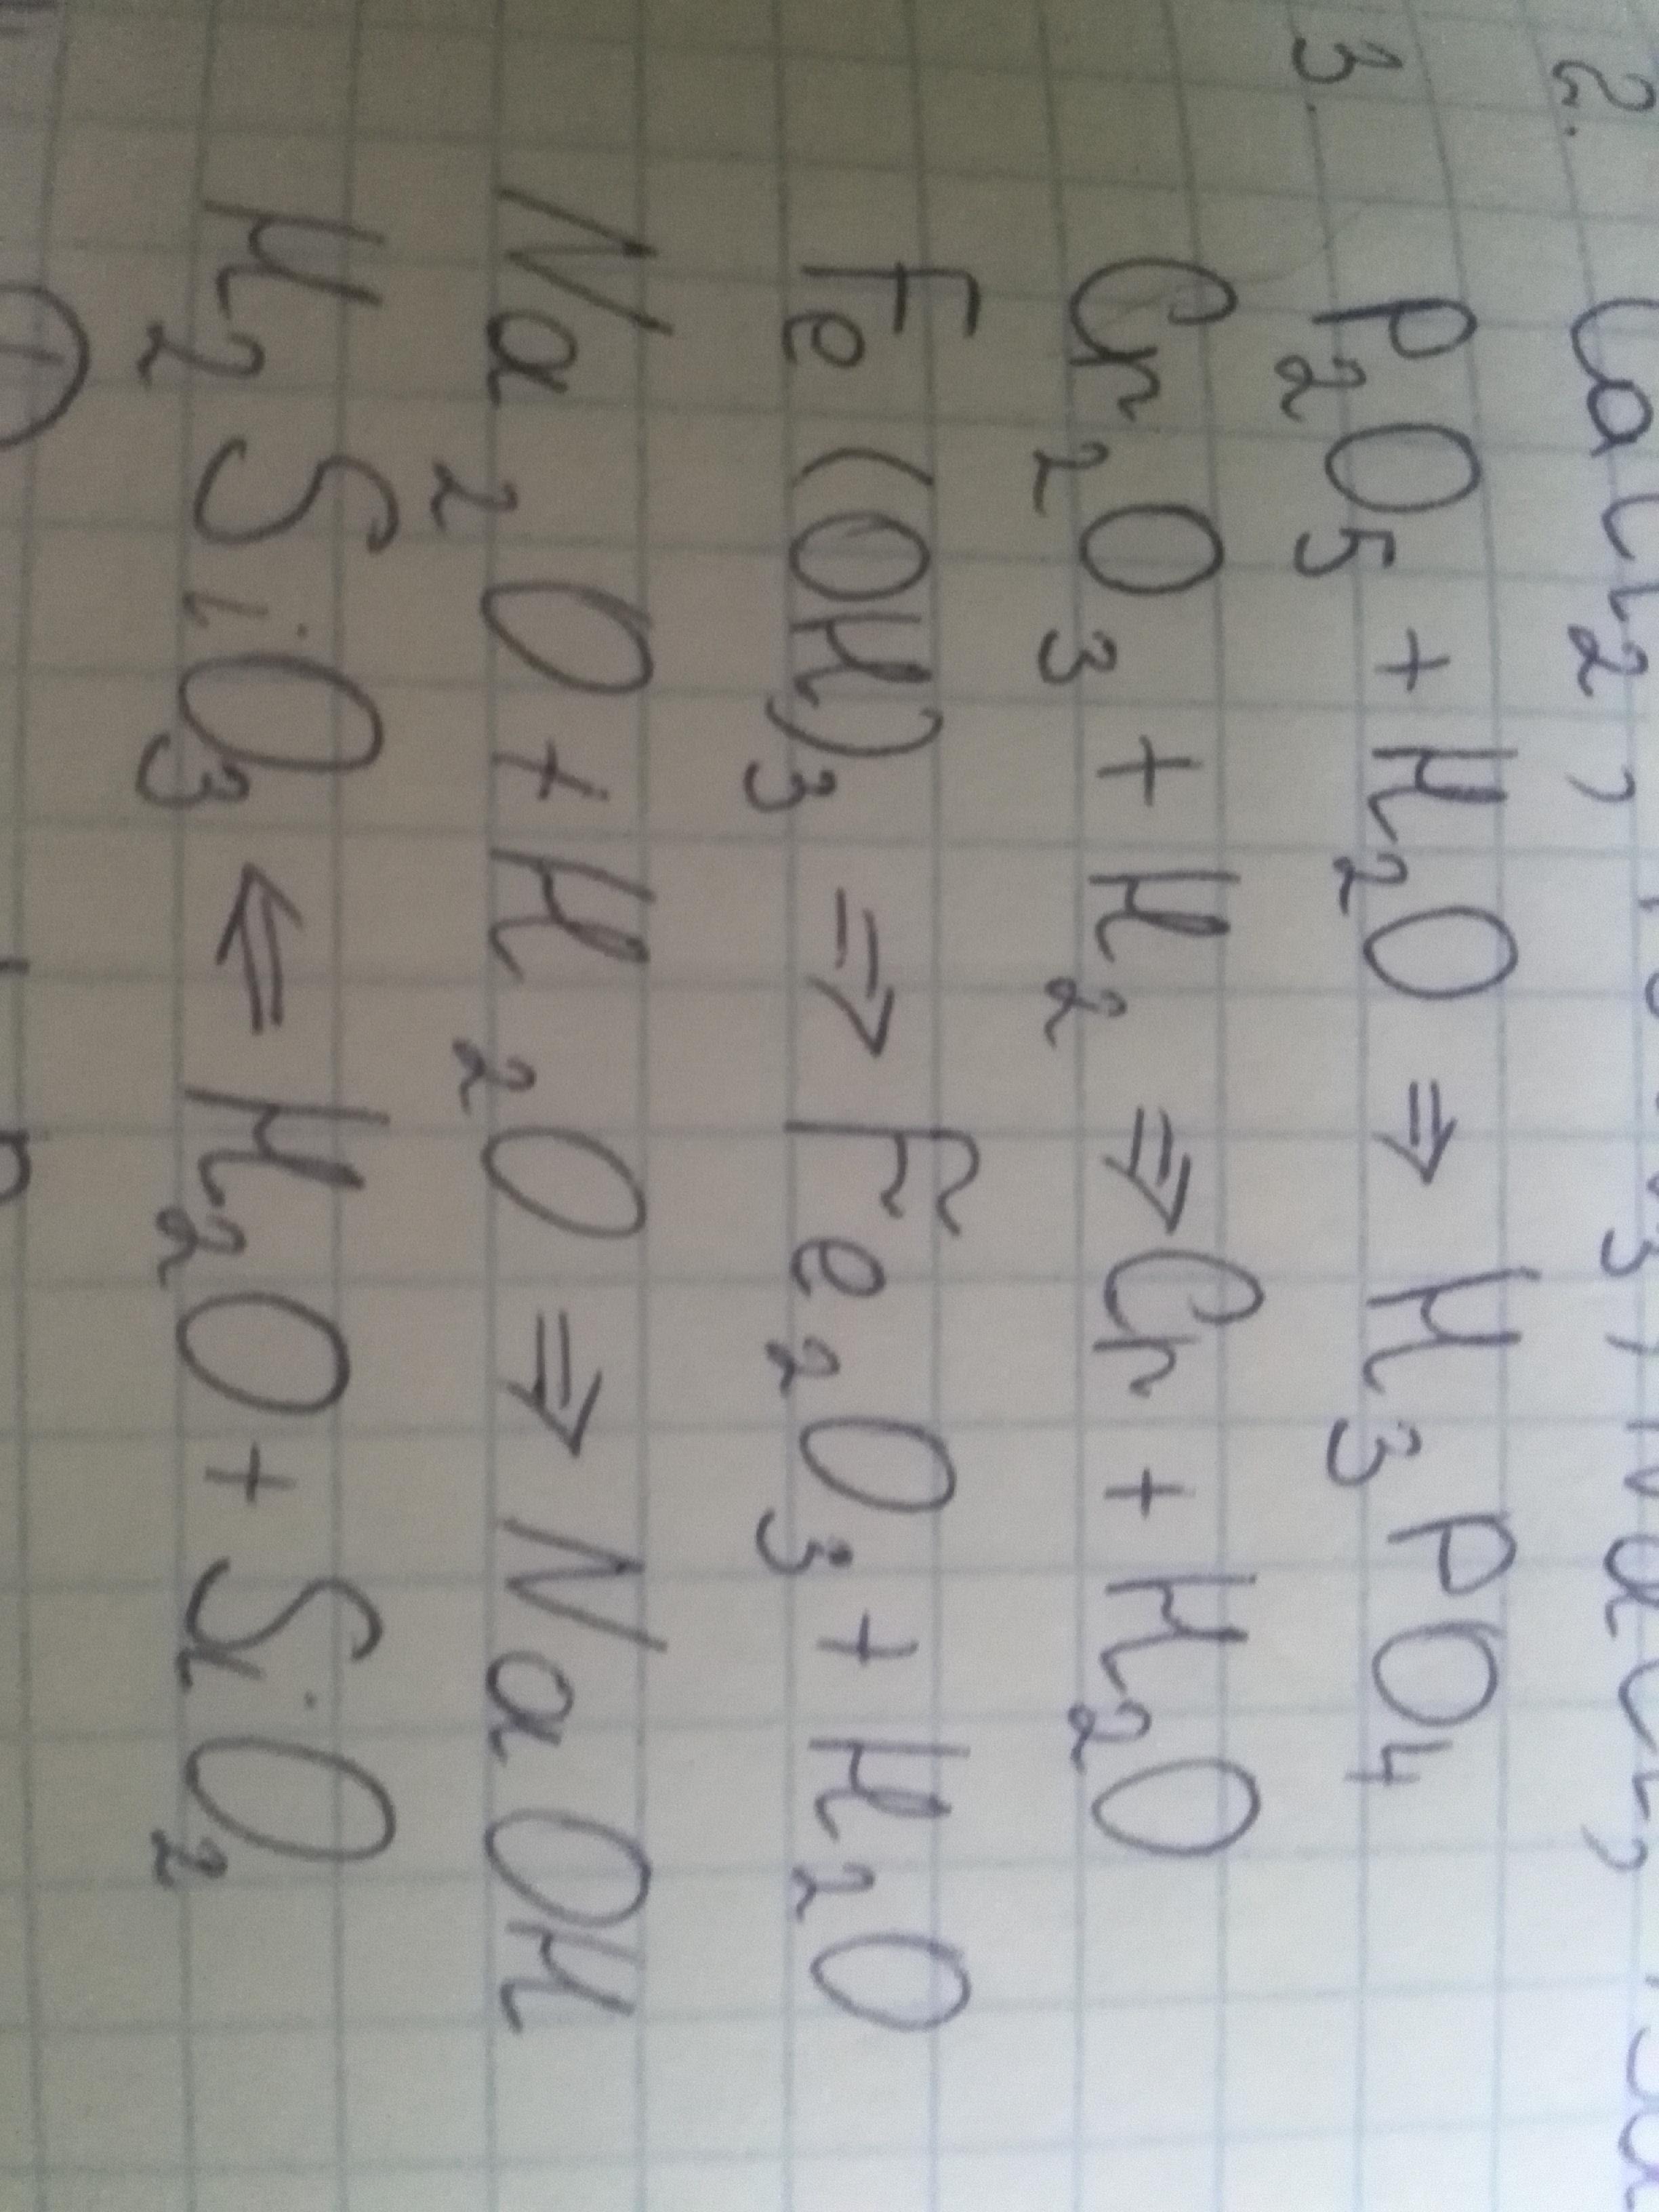 2. CaCl₂,
3. P₂O₅ + H₂O ⇒ H₃PO₄
Cr₂O₃ + H₂ ⇒ Cr + H₂O
Fe(OH)₃ ⇒ Fe₂O₃ + H₂O
Na₂O + H₂O ⇒ NaOH
H₂SiO₃ ⇐ H₂O + SiO₂